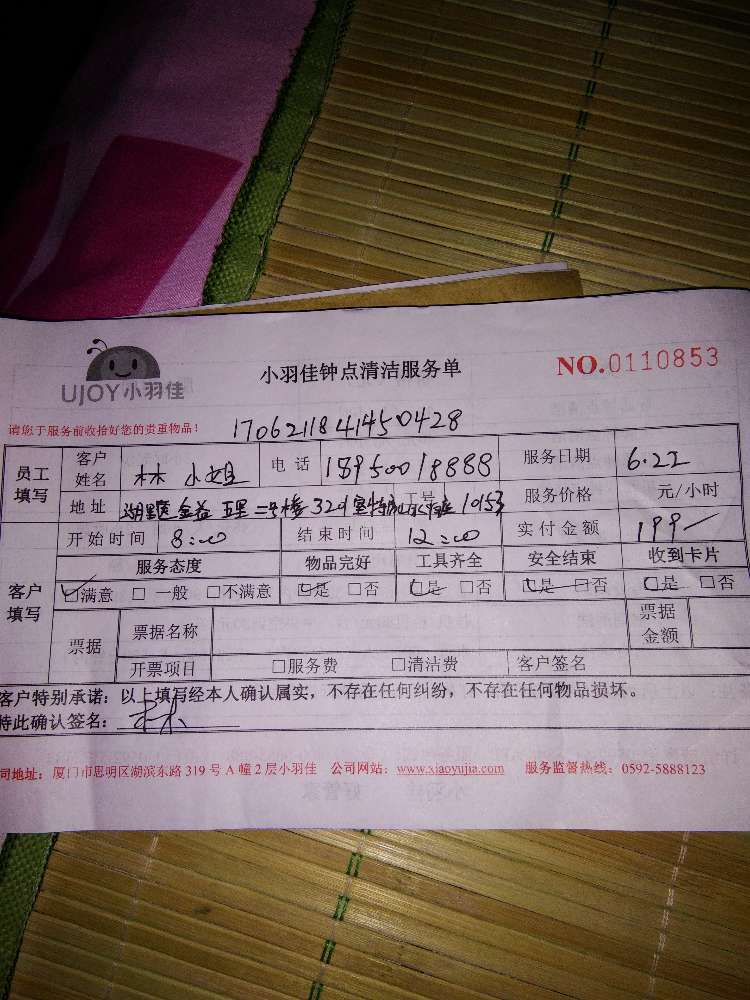 UJOY小羽佳
小羽佳钟点清洁服务单
NO.0110853
请您于服务前收拾好您的贵重物品!
1706211841450428
员工填写 客户姓名 林小姐 电话 18950018888 服务日期 6.22
地址 二号楼 工号 10153 服务价格 元/小时
客户填写 开始时间 8:00 结束时间 12:00 实付金额 199
服务态度 物品完好 工具齐全 安全结束 收到卡片
☑满意 □一般 □不满意 ☑是 □否 ☑是 □否 ☑是 □否 ☑是 □否
票据 票据名称 票据金额
开票项目 □服务费 □清洁费 客户签名
客户特别承诺:以上填写经本人确认属实,不存在任何纠纷,不存在任何物品损坏。
特此确认签名:
司地址:厦门市思明区湖滨东路319号A幢2层小羽佳 公司网站:www.xiaoyujia.com 服务监督热线:0592-5888123